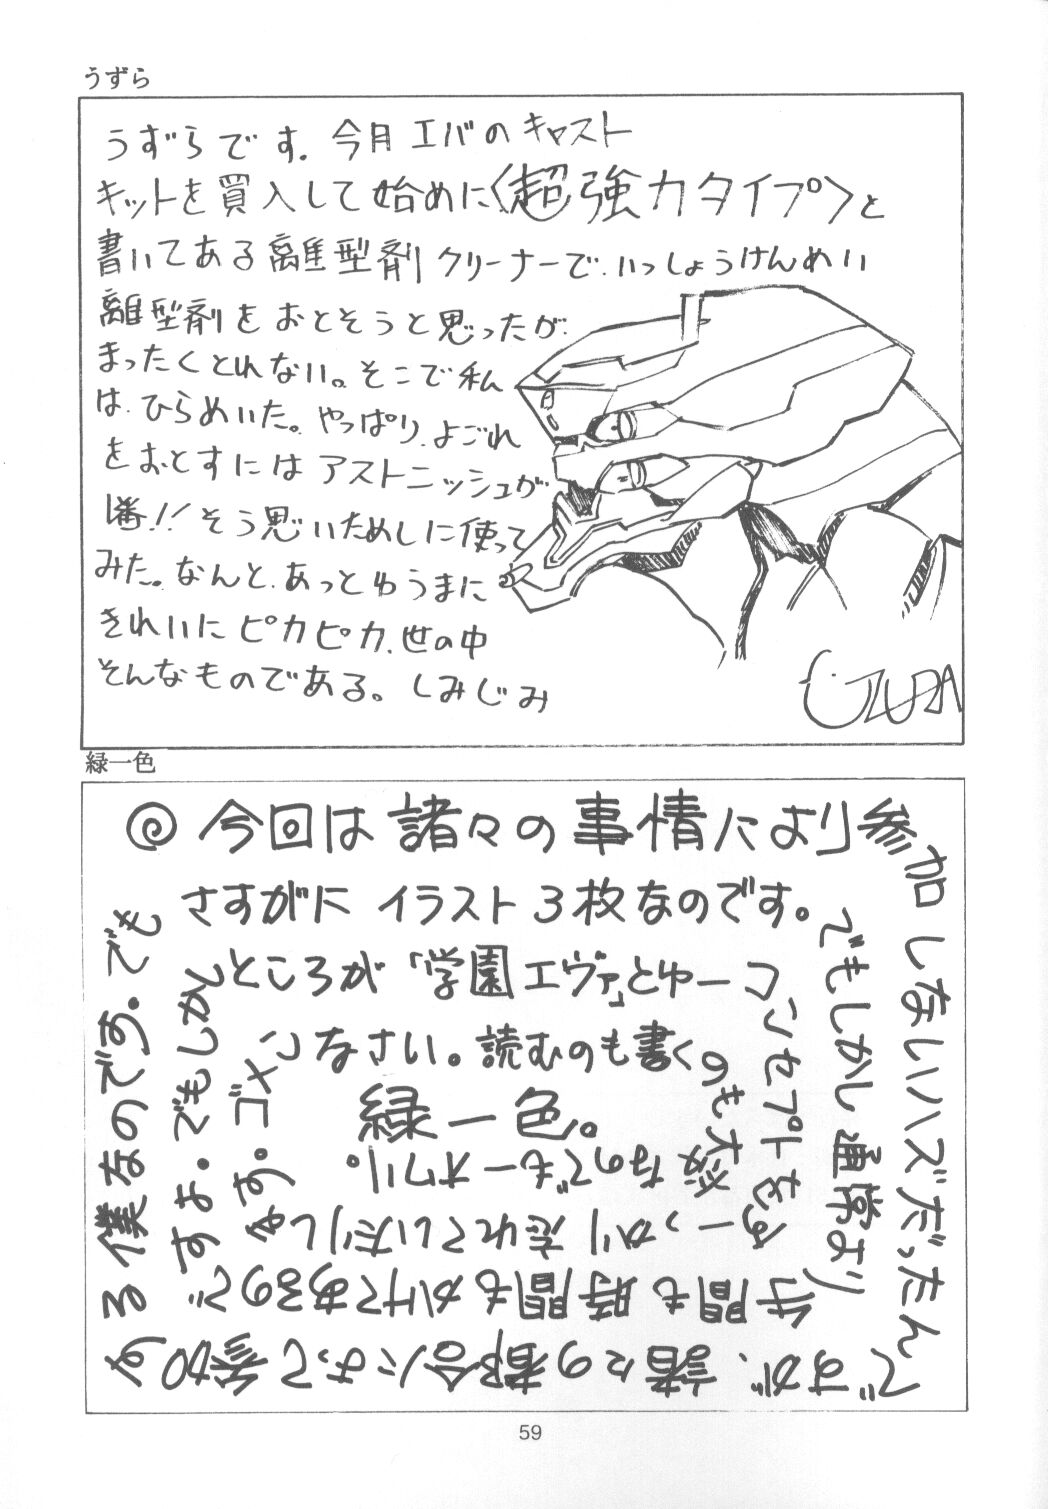 うずら
うずらです.今月エバのキャスト
キットを買入して始めに〈超強力タイプ〉と
書いてある離型剤クリーナーで、いっしょうけんめい
離型剤をおとそうと思ったが、
まったくとれない。そこで私
は、ひらめいた。やっぱり、よごれ
をおとすにはアストニッシュが
1番!!そう思いためしに使って
みた。なんと、あっとゆうまに
きれいにピカピカ、世の中
そんなものである。しみじみ
UZURA
緑一色
今回は諸々の事情により参加
しないハズだったん
ですが、諸々の都合によって参加す
る僕なのです。でも
さすがにイラスト3枚なのです。
でもしかし通常より
手間も時間もかけてあるので
すよ。でもしかし
ところが「学園エヴァ」とゆーコ
ンセプトをす
ーっかり忘れていたりし
ます。ゴメ
ンなさい。読むのも書く
のも大変
なのでもーオワリ。
緑一色。
59